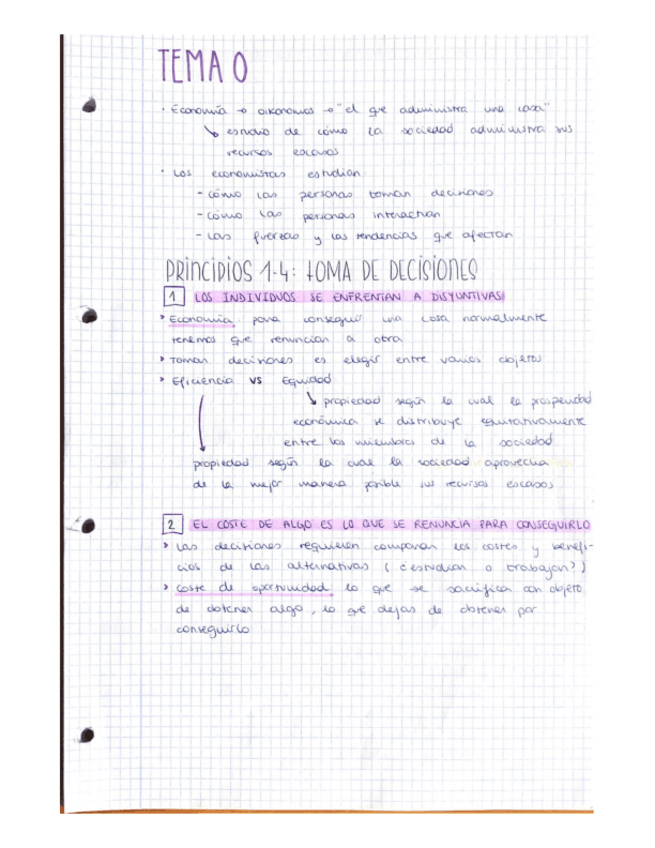 TEMA 0
· Economía → oikonomos → "el que administra una casa"
↳ estudio de cómo la sociedad administra sus
recursos escasos
· Los economistas estudian
- cómo las personas toman decisiones
- cómo las personas interactúan
- las fuerzas y las tendencias que afectan
PRINCIPIOS 1-4: TOMA DE DECISIONES
1 LOS INDIVIDUOS SE ENFRENTAN A DISYUNTIVAS
> Economía: para conseguir una cosa normalmente
tenemos que renunciar a otra
> Tomar decisiones es elegir entre varios objetos
> Eficiencia VS Equidad
↳ propiedad según la cual la prosperidad
económica se distribuye equitativamente
entre los miembros de la sociedad
propiedad según la cual la sociedad aprovecha
de la mejor manera posible sus recursos escasos
2 EL COSTE DE ALGO ES LO QUE SE RENUNCIA PARA CONSEGUIRLO
> Las decisiones requieren comparar los costes y benefi-
cios de las alternativas (¿estudiar o trabajar?)
> Coste de oportunidad: lo que se sacrifica con objeto
de obtener algo, lo que dejas de obtener por
conseguirlo